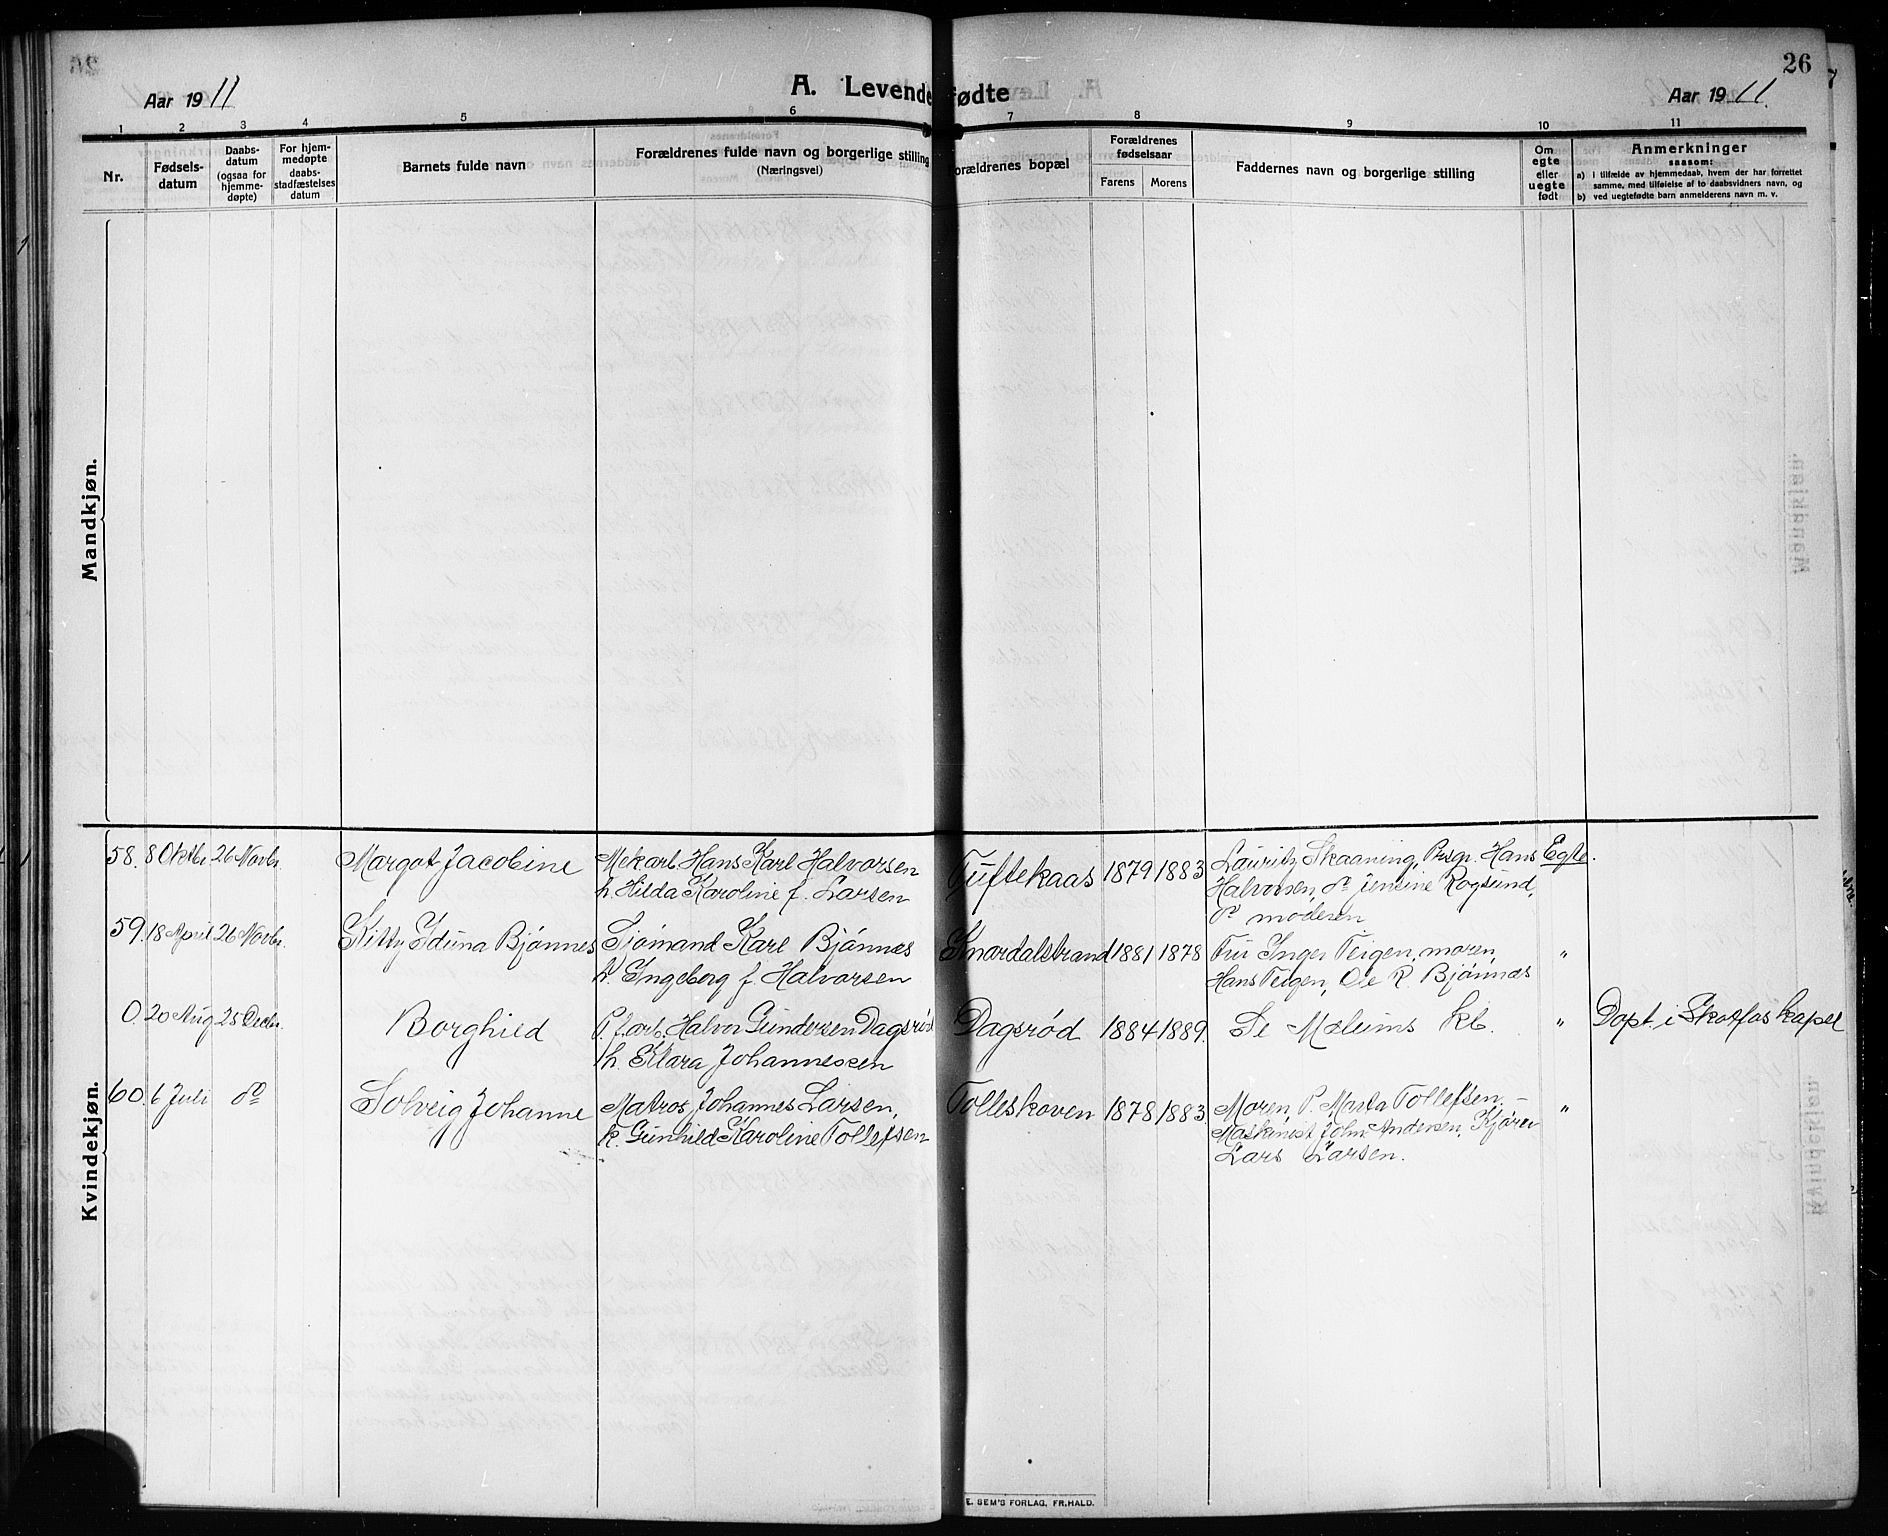 26
Aar 1911
A. Levendefødte
Aar 1911.
1 2 3 4 5 6 7 8 9 10 11
Nr.
Fødsels-
datum
Daabs-
datum
(ogsaa for
hjemme-
døpte)
For hjem-
medøpte
daabs-
stadfæstelses
datum
Barnets fulde navn
Forældrenes fulde navn og borgerlige stilling
(Næringsvei)
Forældrenes bopæl
Forældrenes
fødselsaar
Farens Morens
Faddernes navn og borgerlige stilling
Om
egte
eller
uegte
født
Anmerkninger
saasom:
a) i tilfælde av hjemmedaab, hvem der har forrettet
samme, med tilføielse af to daabsvidners navn, og
b) ved uegtefødte barn anmelderens navn m. v.
Mandkjøn.
Kvindekjøn.
58. 8 Oktbr. 26 Novbr. Margot Jacobine
Mekarb. Hans Karl Halvorsen
h. Hilda Karoline f. Larsen
Tuftekaas 1879 1883
Lauritz Skaaning, Prsgr. Hans
Halvorsen, do Jensine Rogsund,
do moderen
Egte.
59. 18 April 26 Novbr. Kitty Iduna Bjónnes
Sjómand Karl Bjónnæs
h. Ingeborg f. Halvorsen
Snardalstrand 1881 1878
Fru Inger Teigen, moren,
Hans Teigen, Ole R. Bjónnæs
"
0. 20 Aug 25 Decbr. Borghild
P. f. arb. Halvor Gundersen Dagsrød
h. Klara Johannessen
Dagsrød 1884 1889.
Se Mælums kb.
" Døpt i Skotfos kapel
60. 6 Juli do Solveig Johanne
Matros Johannes Larsen,
k. Gunhild Karoline Tollefsen
Tolleskoven 1878 1883
Moren, P. Marta Tollefsen. –
Maskinist John Andersen, Kjører
Lars Larsen.
"
E. SEM'S FORLAG, FR.HALD.